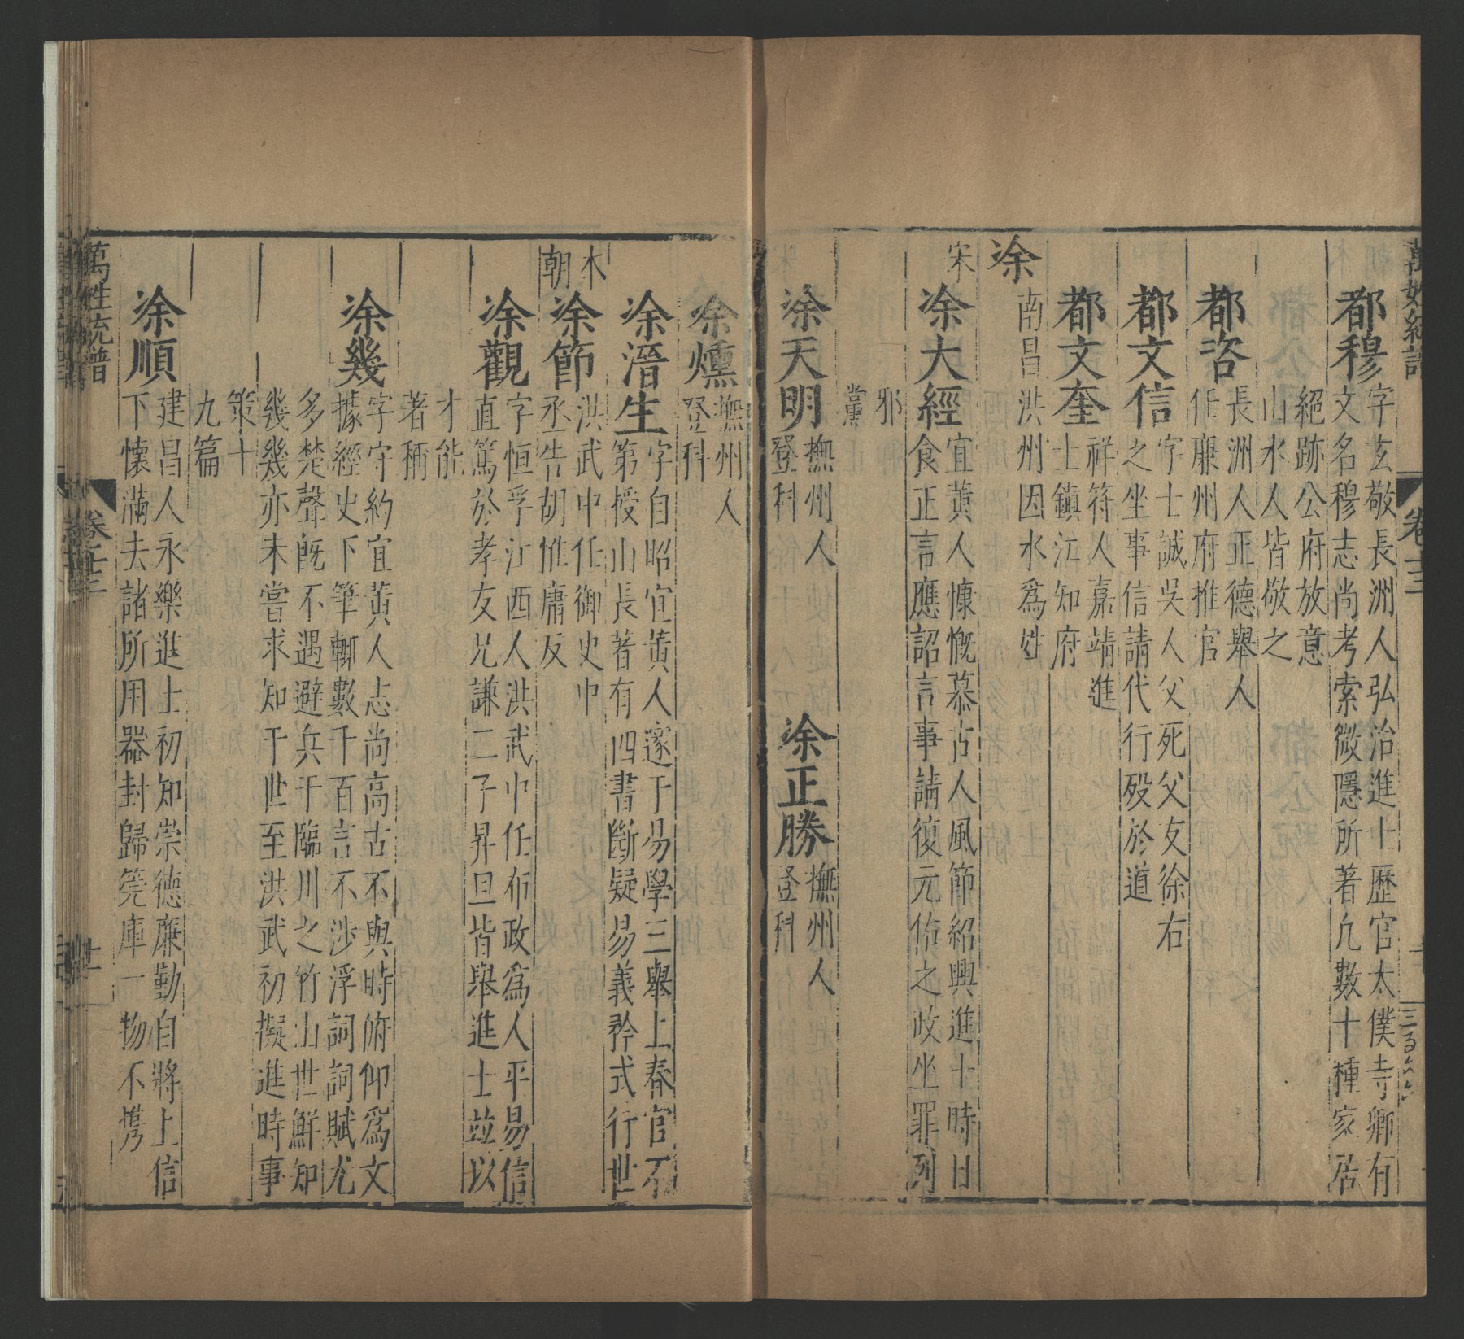 萬姓統譜
卷十三
都穆
字玄敬長洲人弘治進士歷官太僕寺卿有
文名穆志尚考索微隱所著凡數十種家居
絕跡公府放意
山水人皆敬之
都咨
長洲人正德舉人
任廉州府推官
都文信
字士誠吳人父死父友徐右
之坐事信請代行歿於道
都文奎
祥符人嘉靖進
士鎮江知府
涂
南昌洪州因水爲姓
宋
涂大經
宜黃人慷慨慕古人風節紹興進士時日
食正言應詔言事請復元佑之政坐罪列
邪
黨
涂天明
撫州人
登科
涂正勝
撫州人
登科
涂燻
撫州人
登科
涂溍生
字自昭宜黃人邃于易學三舉上春官不
第授山長著有四書斷疑易義矜式行世
本
朝
涂節
洪武中任御史中
丞告胡惟庸反
涂觀
字恒孚江西人洪武中任布政爲人平易信
直篤於孝友兄謙二子昇旦皆舉進士竝以
才能
著稱
涂幾
字守約宜黃人志尚高古不與時俯仰爲文
據經史下筆輒數千百言不涉浮詞詞賦尤
多楚聲既不遇避兵于臨川之竹山世鮮知
幾幾亦未嘗求知于世至洪武初擬進時事
策十
九篇
涂順
建昌人永樂進士初知崇德廉勤自將上信
下懷滿去諸所用器封歸筦庫一物不攜
萬姓統譜
卷十三
十一